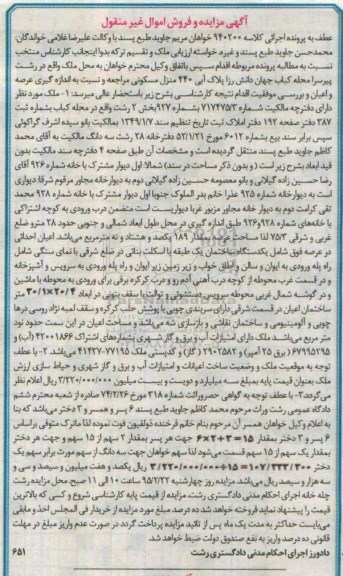 آگهی مزایده و فروش اموال غیر منقول
عطف به پرونده اجرائی کلاسه ۹۴۰۲۰۰ خواهان مریم جاوید طبع پسند با وکالت علیرضا غلامی خواندگان:
محمدحسن جاوید طبع پسند و غیره، خواسته ارزیابی ملک و تقسیم ترکه بدوا اینجانب کارشناس منتخب
نسبت به مطالعه پرونده مربوطه اقدام سپس باتفاق وکیل محترم خواهان به محل ملک واقع در رشت
پیرسرا محله کباب جهان دانش رزا پلاک آبی ۴۴۰ منزل مسکونی مراجعه و نسبت به اندازه گیری عرصه
و اعیان و بررسی موقعیت اقدام نتیجه کارشناسی بشرح زیر باستحضار عالی میرسد: ۱- ملک مورد نظر
دارای دفترچه مالکیت شماره ۷۱۷۴۷۵۳ بشماره ۹۲۷ بخش ۲ رشت واقع در محله کباب بشماره ثبت
۳۸۷ دفتر صفحه ۱۹۲ دفتر املاک ثبت تاریخ تنظیم سند ۱۳۴۹/۱/۷ بمالکیت بانو سیده اشرف گراکوئی
سپس برابر سند بیع بشماره ۶۰۱۲ مورخ ۵۲/۱/۲۱ دفترخانه ۲۸ رشت سه دانگ مالکیت به آقای محمد
کاظم جاوید طبع پسند منتقل گردیده است و مشخصات آن طبق صفحه ۴ دفترچه سند مالکیت بدون
قید ابعاد بشرح زیر است ( و بدون ذکر مساحت در سند) شمالا اول دیوار مشترک با خانه شماره ۹۲۶ آقای
رضا حسین زاده گیلانی و بانو معصومه حسین زاده گیلانی دوم به دیوار خانه مجاور مرقوم شرقا دیواری
است به دیوار خانه شماره ۹۲۵ عذرا خانم بدر الملوک جنوبا اول دیوار مشترک با خانه شماره ۹۲۸ محمد
تقی کرامت دوم به دیوار خانه مجاور مزبور غربا دیواریست است متضمن درب ورودی به کوچه اشتراکی
با خانه‌های شماره ۹۲۸و۹۲۶ طبق اندازه گیری در محل طول ابعاد شمالی و جنوبی حدود ۲۸ مترو ضلع
غربی و شرقی ۷۵/۳ لذا مساحت عرصه بمقدار ۱۸۹ یکصد و هشتاد و نه مترمربع می‌باشد اعیان احداثی
در عرصه فوق شامل یکدستگاه ساختمان یک طبقه با اسکلت بنائی در ضلع شرقی با نمای سنگی شامل
راه پله ورودی به ایوان و سالن و اطاق خواب و زیر زمین زیر ایوان و راه پله ورودی به سرویس و آشپزخانه
و در قسمت غرب محوطه از کوچه درب آهنی آدم رو و درب کرکره برقی برای ورودی به محوطه با ماشین
و در گوشه شمال غربی محوطه سرویس دستشوئی و توالت با سقف چوبی در ابعاد ۲۰/۴ × ۳۰/۱ متر
ساختمان اعیان در قسمت شرقی دارای سربندی چوبی با پوشش حلب کرکره و سقف لمبه نژاد روسی درها
چوبی و آلومینیومی و ساختمان نقاشی و بازسازی شده می‌باشد و مساحت اعیان در این سمت حدود نود
متر مربع می‌باشد ملک دارای امتیازات آب و برق و گاز شهری بشمارهای اشتراک ۴۲۰۰۱۸۶۶ (آب) و
۶۷۹۹۵۲۹۵ ( برق ۲۵ آمپر) و ۲۹۰۲۵۸۲ ( گاز) و کد پستی ملک ۷۷۱۹۵-۴۱۴۳۷ می‌باشد. ۲- با عطف
توجه به موقعیت ملک و وضعیت ساخت اعیانات و امتیازات آب و برق و گاز شهری و حیاط سازی ارزش
ملک بعنوان قیمت پایه بمبلغ سه میلیارد و دویست و بیست میلیون ۳/۲۲۰/۰۰۰/۰۰۰ ریال اعلام نظر
می‌گردد. ۳- با عطف توجه به گواهی حصروراثت شماره ۳۱۸ مورخ ۷۴/۲/۲۶ صادره از شعبه محترم ششم
دادگاه عمومی رشت وراث مرحوم محمد کاظم جاوید طبع پسند ۶ پسر و همسر و ۳ دختر می‌باشد که بنا
به اعلام وکیل خواهان همسر آن مرحوم بنام خانم فرخنده ذولفنون فوت نموده لذا ماترک متوفی براساس
۶ پسر و ۳ دختر بمقدار ۱۵=۳+۲×۶ جهت هر پسر بمقدار ۲ سهم از ۱۵ سهم و جهت هر دختر
بمقدار یک سهم از ۱۵ سهم قسمت می‌شود لذا سهم خواهان جهت سه دانگ از سهم مورث برابر سهم یک
دختر ۱۰۷/۳۳۳/۳۰۰=۱۵÷۳/۲۲۰/۰۰۰/۰۰۰ ریال یکصد و هفت میلیون و سیصد و سی و
سه هزار و سیصد ریال می‌باشد. مزایده روز چهارشنبه ۹۵/۲/۲۲ ساعت ۱۰ الی ۱۱ صبح محل مزایده رشت
چله خانه اجرای احکام مدنی دادگستری رشت. مزایده از قیمت پایه کارشناسی شروع و کسی که بالاترین
قیمت را پیشنهاد نماید فروخته خواهد شد ده درصد مبلغ مورد مزایده از خریدار فی المجلس اخذ و مابقی
می‌بایست حداکثر به مدت یک ماه پس از تائید مزایده پرداخت گردد در صورت عدم واریز مبلغ در مهلت
قانونی ده درصد واریزی به نفع صندوق دولت ضبط خواهد شد.
دادورز اجرای احکام مدنی دادگستری رشت
۶۵۱